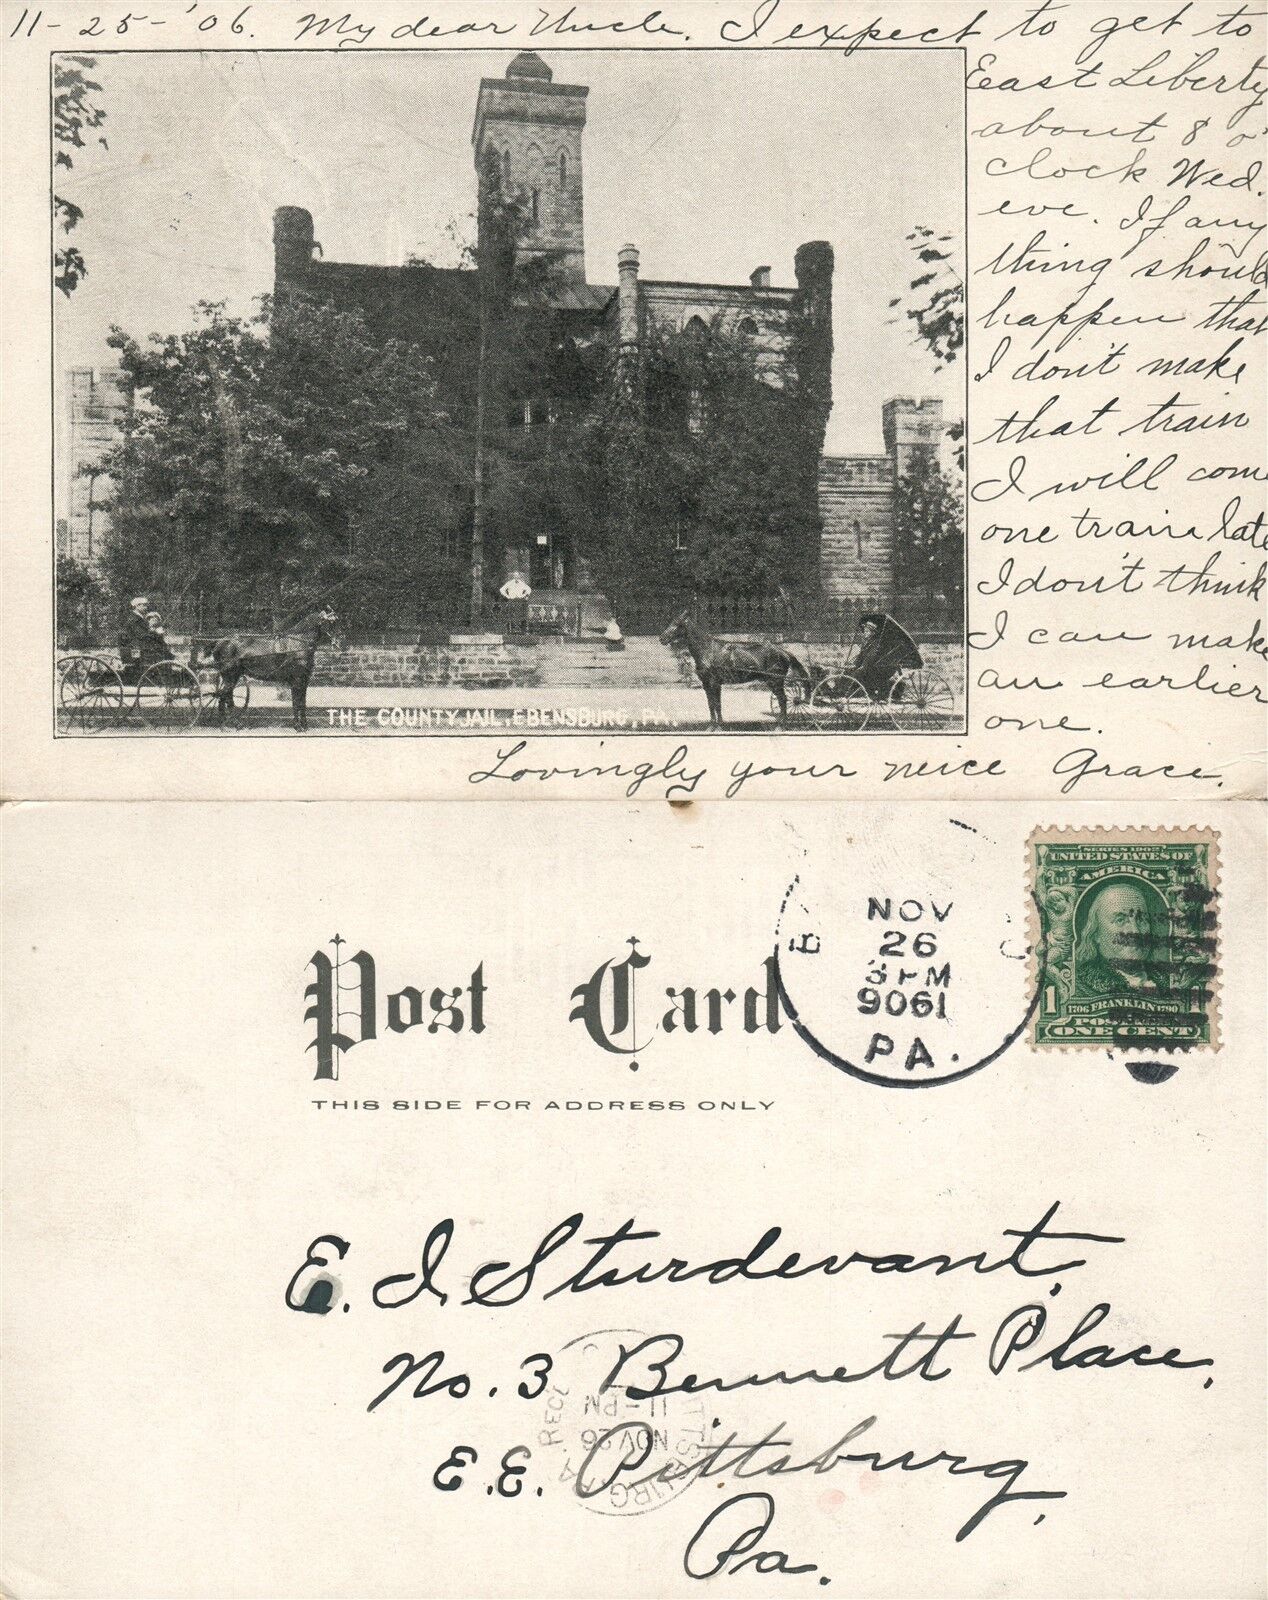 11-25-'06. My dear Uncle. I expect to get to
East Liberty
about 8 o'
clock Wed.
eve. If any
thing should
happen that
I don't make
that train
I will come
one train late
I don't think
I can make
an earlier
one.
THE COUNTY JAIL, EBENSBURG, PA.
Lovingly your neice Grace.
Post Card
THIS SIDE FOR ADDRESS ONLY
NOV
26
3 PM
9061
PA.
SERIES 1902
UNITED STATES OF
AMERICA
1
1706 FRANKLIN 1790
ONE CENT
E. I. Sturdevant,
No. 3 Bennett Place,
E.E. Pittsburg,
Pa.
REC'
11-PM
NOV 26